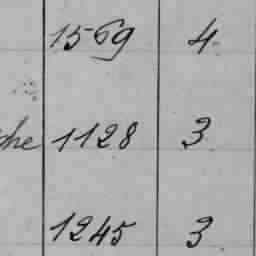 1569 4
he 1128 3
1245 3